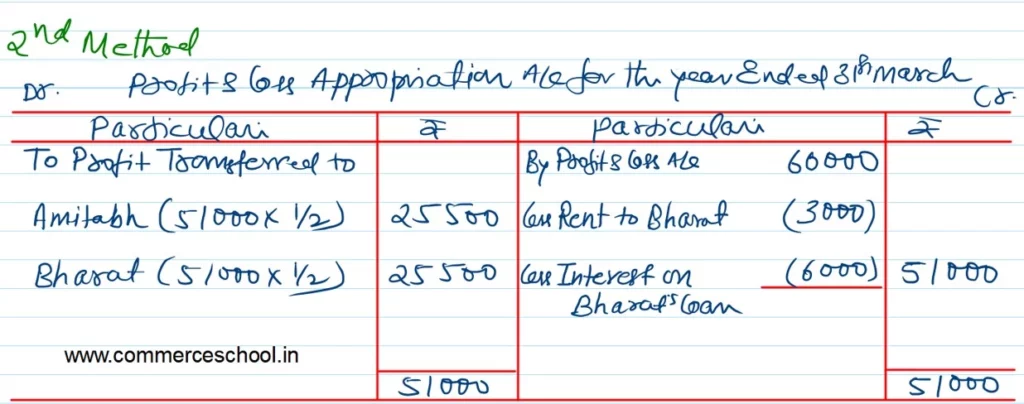 2nd Method
Dr. Profit & Loss Appropriation A/c for the year Ended 31st March Cr.
Particulars ₹ Particulars ₹
To Profit Transferred to By Profit & Loss A/c 60000
Amitabh (51000 x 1/2) 25500 Less Rent to Bharat (3000)
Bharat (51000 x 1/2) 25500 Less Interest on (6000) 51000
Bharat's Loan
www.commerceschool.in
51000 51000